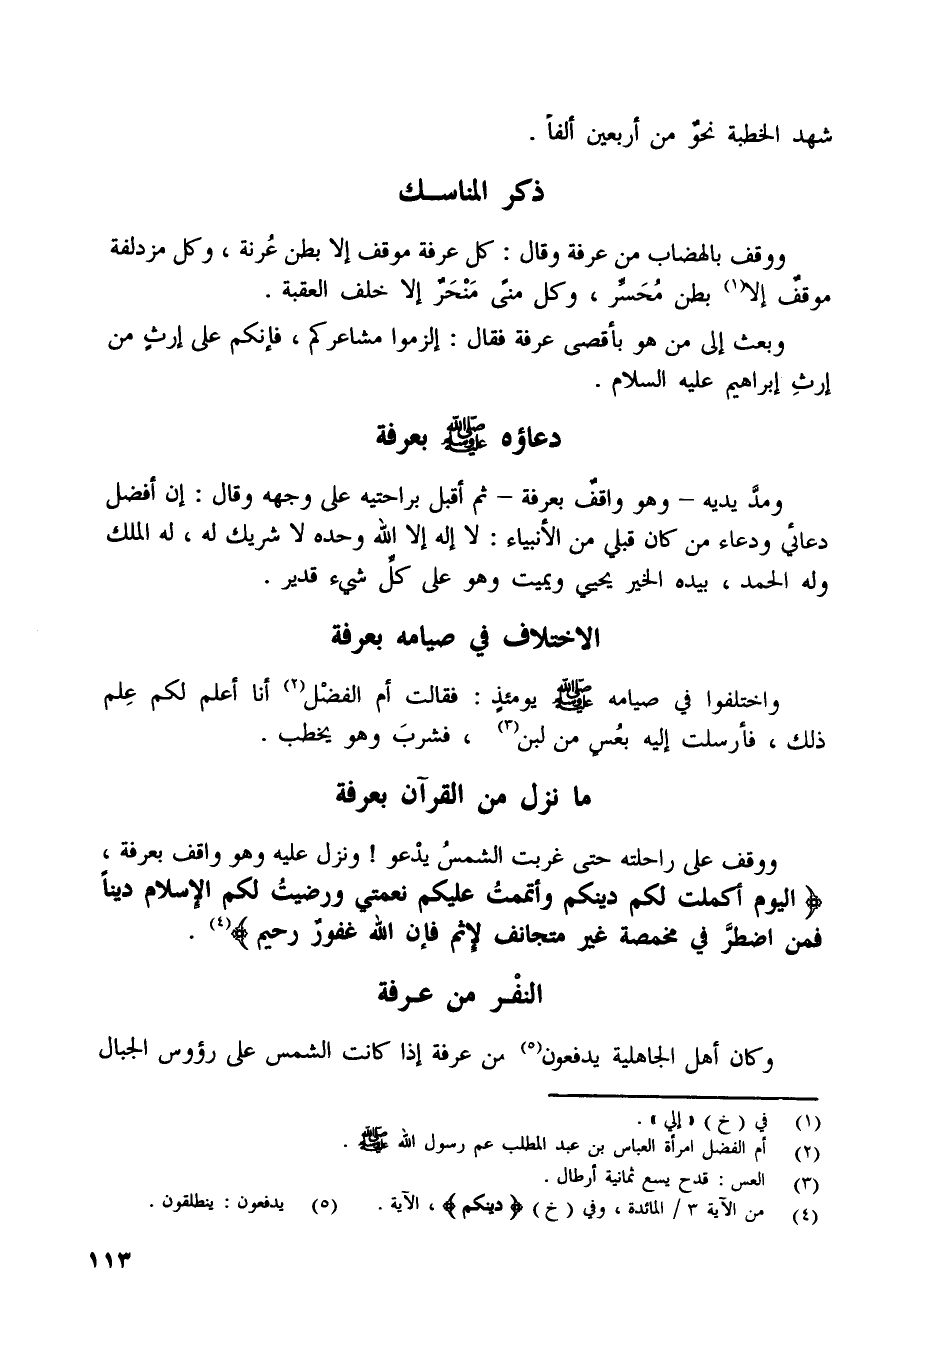 شهد الخطبة نحوٌ من أربعين ألفاً .
ذكر المناســك
ووقف بالهضاب من عرفة وقال : كل عرفة موقف إلا بطن عُرنة ، وكل مزدلفة
موقفٌ إلا(١) بطن مُحَسِّر ، وكل منىً مَنْحَرٌ إلا خلف العقبة .
وبعث إلى من هو بأقصى عرفة فقال : إلزموا مشاعركم ، فإنكم على إرثٍ من
إرثِ إبراهيم عليه السلام .
دعاؤه ﷺ بعرفة
ومدَّ يديه – وهو واقفٌ بعرفة – ثم أقبل براحتيه على وجهه وقال : إن أفضل
دعائي ودعاء من كان قبلي من الأنبياء : لا إله إلا الله وحده لا شريك له ، له الملك
وله الحمد ، بيده الخير يحيي ويميت وهو على كلِّ شيء قدير .
الاختلاف في صيامه بعرفة
واختلفوا في صيامه ﷺ يومئذٍ : فقالت أم الفضْل(٢) أنا أعلم لكم عِلم
ذلك ، فأرسلت إليه بعُسٍ من لبن(٣) ، فشربَ وهو يخطب .
ما نزل من القرآن بعرفة
ووقف على راحلته حتى غربت الشمسُ يدْعو ! ونزل عليه وهو واقف بعرفة ،
﴿ اليوم أكملت لكم دينكم وأتممتُ عليكم نعمتي ورضيتُ لكم الإسلام ديناً
فمن اضطرَّ في مخمصة غير متجانف لإثم فإن الله غفورٌ رحيم ﴾(٤) .
النفْـر من عـرفة
وكان أهل الجاهلية يدفعون(٥) من عرفة إذا كانت الشمس على رؤوس الجبال
(١) في ( خ ) « إلي » .
(٢) أم الفضل امرأة العباس بن عبد المطلب عم رسول الله ﷺ .
(٣) العس : قدح يسع ثمانية أرطال .
(٤) من الآية ٣ / المائدة ، وفي ( خ ) ﴿ دينكم ﴾ ، الآية . (٥) يدفعون : ينطلقون .
١١٣